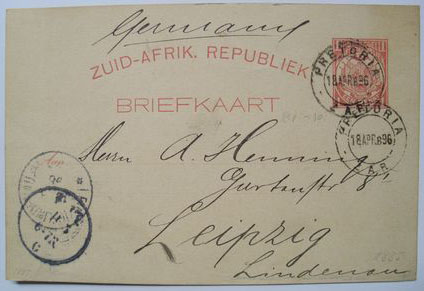 Germany
ZUID-AFRIK. REPUBLIEK
BRIEFKAART
PRETORIA
18APR96
Z.A.R.
PRETORIA
18APR96
Z.A.R.
Herrn A. Henning
Gartenstr 8
Leipzig
Lindenau